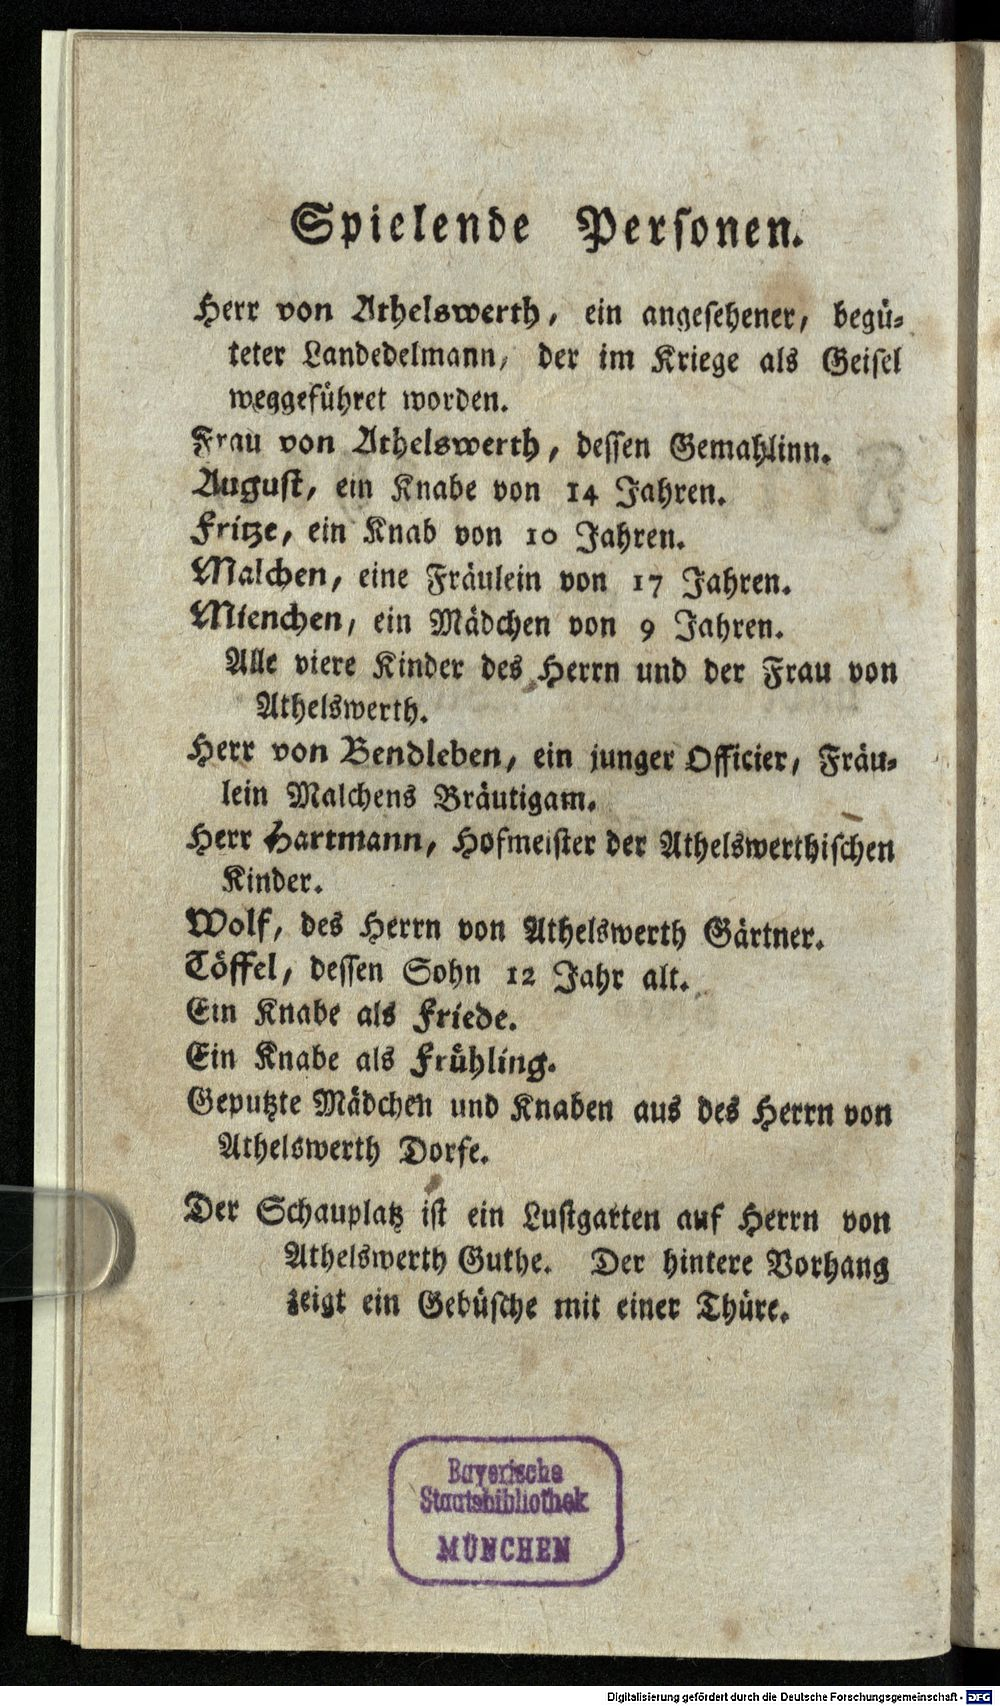 Spielende Personen.
Herr von Athelswerth, ein angesehener, begü-
teter Landedelmann, der im Kriege als Geisel
weggeführet worden.
Frau von Athelswerth, dessen Gemahlinn.
August, ein Knabe von 14 Jahren.
Fritze, ein Knab von 10 Jahren.
Malchen, eine Fräulein von 17 Jahren.
Mienchen, ein Mädchen von 9 Jahren.
Alle viere Kinder des Herrn und der Frau von
Athelswerth.
Herr von Bendleben, ein junger Officier, Fräu-
lein Malchens Bräutigam.
Herr Hartmann, Hofmeister der Athelswerthischen
Kinder.
Wolf, des Herrn von Athelswerth Gärtner.
Töffel, dessen Sohn 12 Jahr alt.
Ein Knabe als Friede.
Ein Knabe als Frühling.
Geputzte Mädchen und Knaben aus des Herrn von
Athelswerth Dorfe.
Der Schauplatz ist ein Lustgarten auf Herrn von
Athelswerth Guthe. Der hintere Vorhang
zeigt ein Gebüsche mit einer Thüre.
Bayerische
Staatsbibliothek
MÜNCHEN
Digitalisierung gefördert durch die Deutsche Forschungsgemeinschaft - DFG